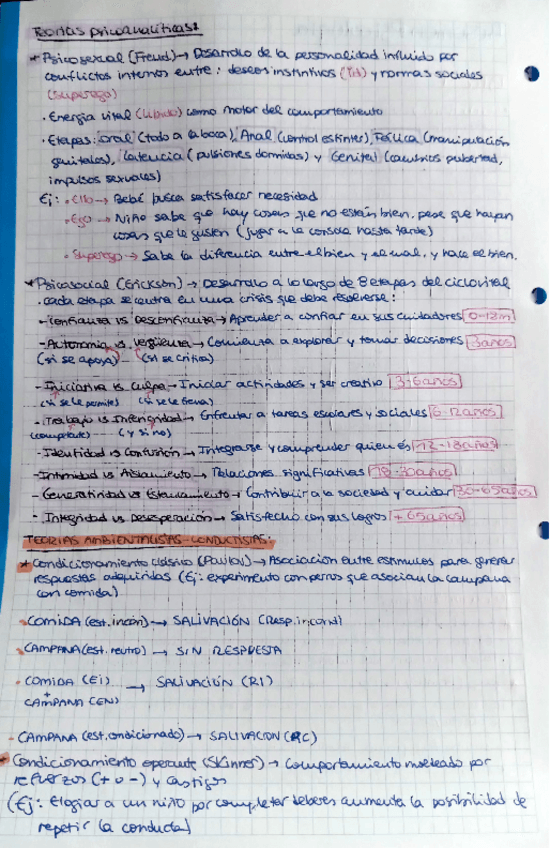 Teorías psicoanalíticas:
* Psicosexual (Freud) → Desarrollo de la personalidad influido por
conflictos internos entre: deseos instintivos (Id) y normas sociales
(Superego)
· Energía vital (Libido) como motor del comportamiento
· Etapas: oral (todo a la boca), Anal (control esfínter), Fálica (manipulación
genitales), Latencia (pulsiones dormidas) y Genital (cambios pubertad,
impulsos sexuales)
Ej: · Ello → Bebé busca satisfacer necesidad
· Ego → Niño sabe que hay cosas que no están bien, pese que hayan
cosas que le gusten (jugar a la consola hasta tarde)
· Superego → Sabe la diferencia entre el bien y el mal, y hace el bien.
* Psicosocial (Erickson) → Desarrollo a lo largo de 8 etapas del ciclo vital
. cada etapa se centra en una crisis que debe resolverse:
- Confianza vs Desconfianza → Aprender a confiar en sus cuidadores 0-12m
- Autonomía vs vergüenza → Comienza a explorar y tomar decisiones 3años
(si se apoya) (si se critica)
- Iniciativa vs Culpa → Iniciar actividades y ser creativo 3-6años
(si se le permite) (si se le frena)
- Trabajo vs Inferioridad → Enfrentar a tareas escolares y sociales 6-12años
(competente) (y si no)
- Identidad vs Confusión → Integrarse y comprender quien es 12-18años
- Intimidad vs Aislamiento → Relaciones significativas 18-30años
- Generatividad vs Estancamiento → Contribuir a la sociedad y cuidar 30-65años
- Integridad vs Desesperación → Satisfecho con sus logros + 65años
TEORÍAS AMBIENTALISTAS-CONDUCTISTAS:
* Condicionamiento clásico (Pavlov) → Asociación entre estímulos para generar
respuestas adquiridas (Ej: experimento con perros que asocian la campana
con comida)
· COMIDA (est. incon) → SALIVACIÓN (Resp. incond)
· CAMPANA (est. neutro) → SIN RESPUESTA
· COMIDA (Ei) → SALIVACIÓN (RI)
+
CAMPANA (EN)
- CAMPANA (est. condicionado) → SALIVACION (RC)
* Condicionamiento operante (Skinner) → Comportamiento moldeado por
refuerzos (+ o -) y castigos
(Ej: Elogiar a un niño por completar deberes aumenta la posibilidad de
repetir la conducta)